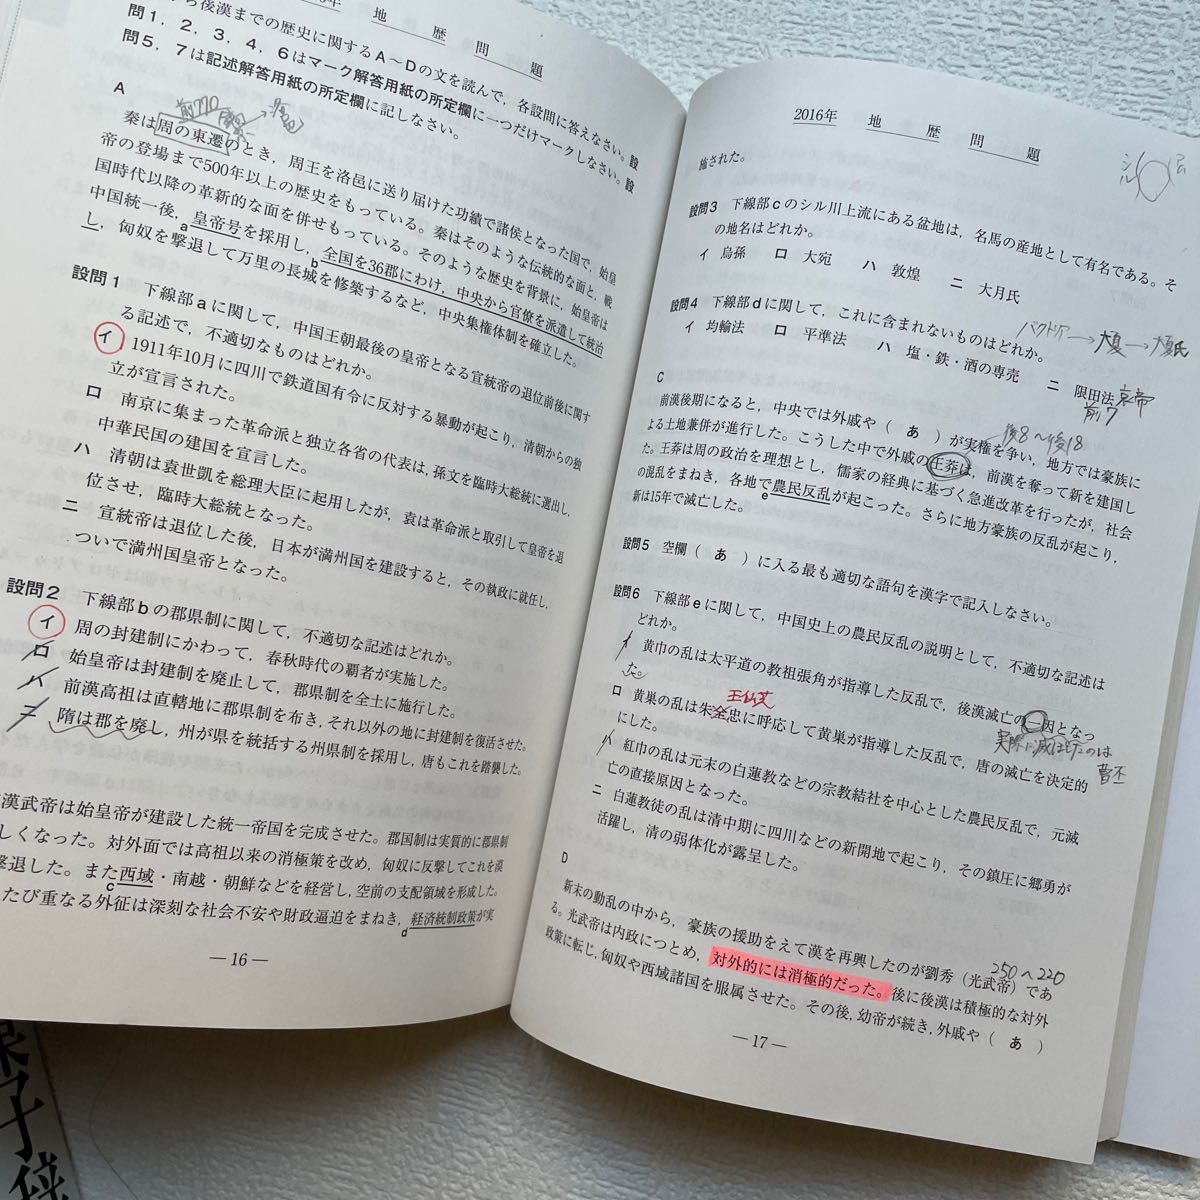 年 地 歴 問 題
ら後漢までの歴史に関するA〜Dの文を読んで，各設問に答えなさい。設
問1，2，3，4，6はマーク解答用紙の所定欄に一つだけマークしなさい。設
問5，7は記述解答用紙の所定欄に記しなさい。
A
前770
秦は周の東遷のとき，周王を洛邑に送り届けた功績で諸侯となった国で，始皇
帝の登場まで500年以上の歴史をもっている。秦はそのような伝統的な面と，戦
国時代以降の革新的な面を併せもっている。そのような歴史を背景に，始皇帝は
中国統一後，皇帝号を採用し，全国を36郡にわけ，中央から官僚を派遣して統治
a
b
し，匈奴を撃退して万里の長城を修築するなど，中央集権体制を確立した。
設問1 下線部aに関して，中国王朝最後の皇帝となる宣統帝の退位前後に関す
る記述で，不適切なものはどれか。
イ 1911年10月に四川で鉄道国有令に反対する暴動が起こり，清朝からの独
立が宣言された。
ロ 南京に集まった革命派と独立各省の代表は，孫文を臨時大総統に選出し，
中華民国の建国を宣言した。
ハ 清朝は袁世凱を総理大臣に起用したが，袁は革命派と取引して皇帝を退
位させ，臨時大総統となった。
ニ 宣統帝は退位した後，日本が満州国を建設すると，その執政に就任し，
ついで満州国皇帝となった。
設問2 下線部bの郡県制に関して，不適切な記述はどれか。
イ 周の封建制にかわって，春秋時代の覇者が実施した。
ロ 始皇帝は封建制を廃止して，郡県制を全土に施行した。
ハ 前漢高祖は直轄地に郡県制を布き，それ以外の地に封建制を復活させた。
ニ 隋は郡を廃し，州が県を統括する州県制を採用し，唐もこれを踏襲した。
漢武帝は始皇帝が建設した統一帝国を完成させた。郡国制は実質的に郡県制
しくなった。対外面では高祖以来の消極策を改め，匈奴に反撃してこれを漠
撃退した。また西域・南越・朝鮮などを経営し，空前の支配領域を形成した。
c
たび重なる外征は深刻な社会不安や財政逼迫をまねき，経済統制政策が実
d
—16—
2016年 地 歴 問 題
施された。
シル
設問3 下線部cのシル川上流にある盆地は，名馬の産地として有名である。そ
の地名はどれか。
イ 烏孫 ロ 大宛 ハ 敦煌 ニ 大月氏
設問4 下線部dに関して，これに含まれないものはどれか。
バクトリア→大夏→大月氏
イ 均輸法 ロ 平準法 ハ 塩・鉄・酒の専売 ニ 限田法 哀帝
前7
C
前漢後期になると，中央では外戚や（ あ ）が実権を争い，地方では豪族に
後8〜後18
よる土地兼併が進行した。こうした中で外戚の王莽は，前漢を奪って新を建国し
た。王莽は周の政治を理想とし，儒家の経典に基づく急進改革を行ったが，社会
の混乱をまねき，各地で農民反乱が起こった。さらに地方豪族の反乱が起こり，
e
新は15年で滅亡した。
設問5 空欄（ あ ）に入る最も適切な語句を漢字で記入しなさい。
設問6 下線部eに関して，中国史上の農民反乱の説明として，不適切な記述は
どれか。
イ 黄巾の乱は太平道の教祖張角が指導した反乱で，後漢滅亡の一因となっ
た。
実際に滅ぼしたのは
曹丕
王仙芝
ロ 黄巣の乱は朱全忠に呼応して黄巣が指導した反乱で，唐の滅亡を決定的
にした。
ハ 紅巾の乱は元末の白蓮教などの宗教結社を中心とした農民反乱で，元滅
亡の直接原因となった。
ニ 白蓮教徒の乱は清中期に四川などの新開地で起こり，その鎮圧に郷勇が
活躍し，清の弱体化が露呈した。
D
新末の動乱の中から，豪族の援助をえて漢を再興したのが劉秀（光武帝）であ
250〜220
る。光武帝は内政につとめ，対外的には消極的だった。後に後漢は積極的な対外
政策に転じ，匈奴や西域諸国を服属させた。その後，幼帝が続き，外戚や（ あ ）
—17—